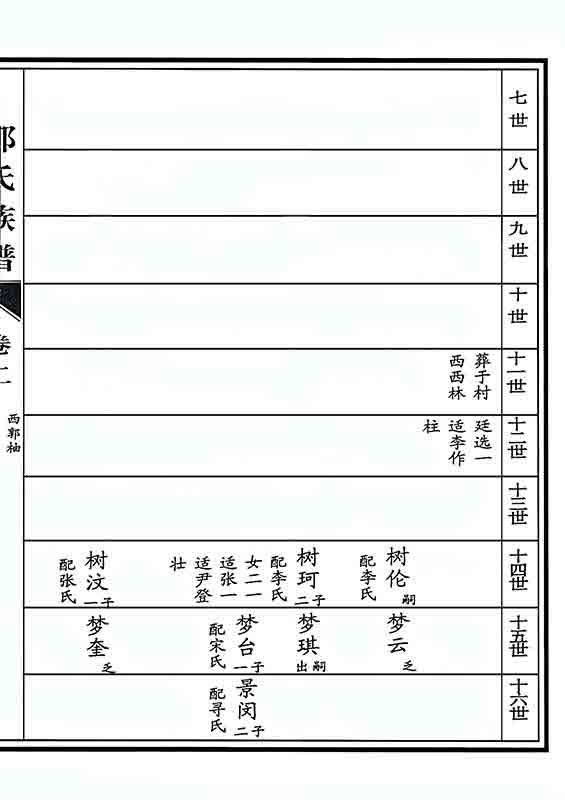 七世
八世
九世
十世
十一世
葬于村
西西林
十二世
廷选一
适李作
柱
十三世
十四世
树伦
嗣
配李氏
树珂
二子
配李氏
女二一
适张一
适尹登
壮
树汶
一子
配张氏
十五世
梦云
乏
梦琪
出嗣
梦台
一子
配宋氏
梦奎
乏
十六世
景闵
二子
配寻氏
氏族谱
卷二
西郭柚